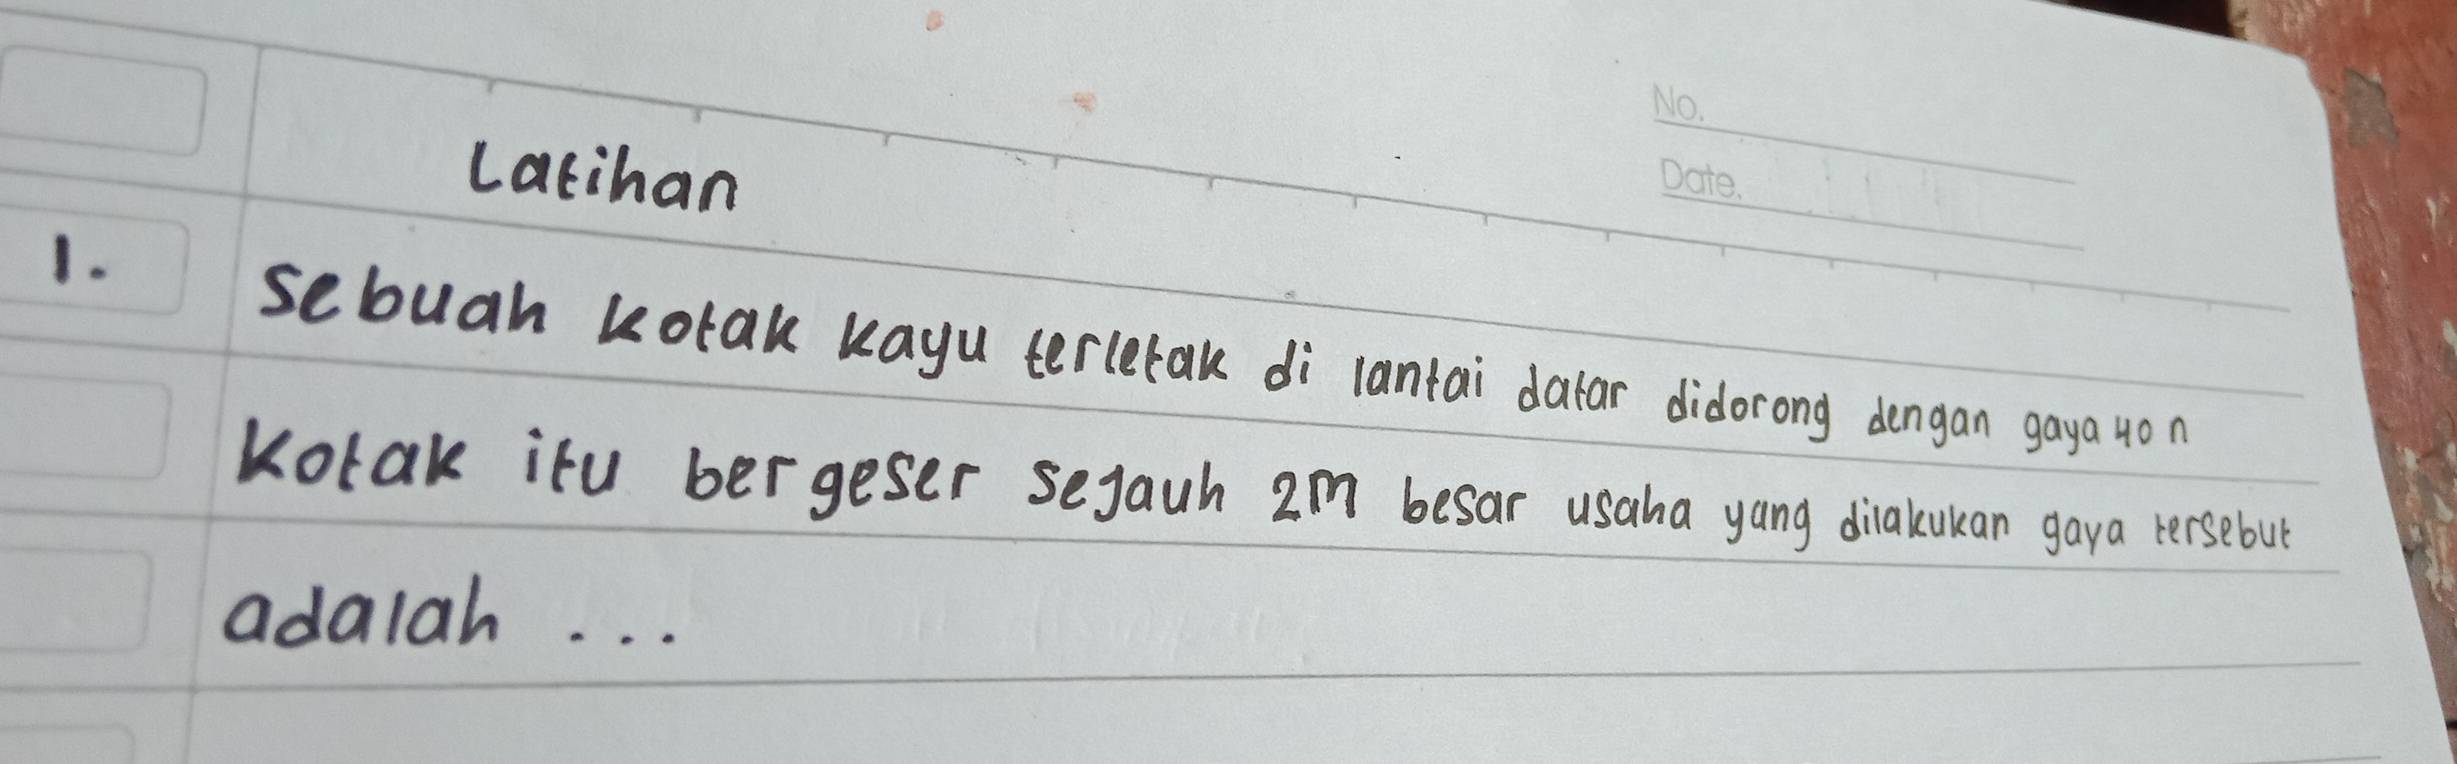 No.
Date.
Latihan
1. sebuah kotak kayu terletak di lantai datar didorong dengan gaya 40 n
Kotak itu bergeser sejauh 2m besar usaha yang dilakukan gaya tersebut
adalah ...